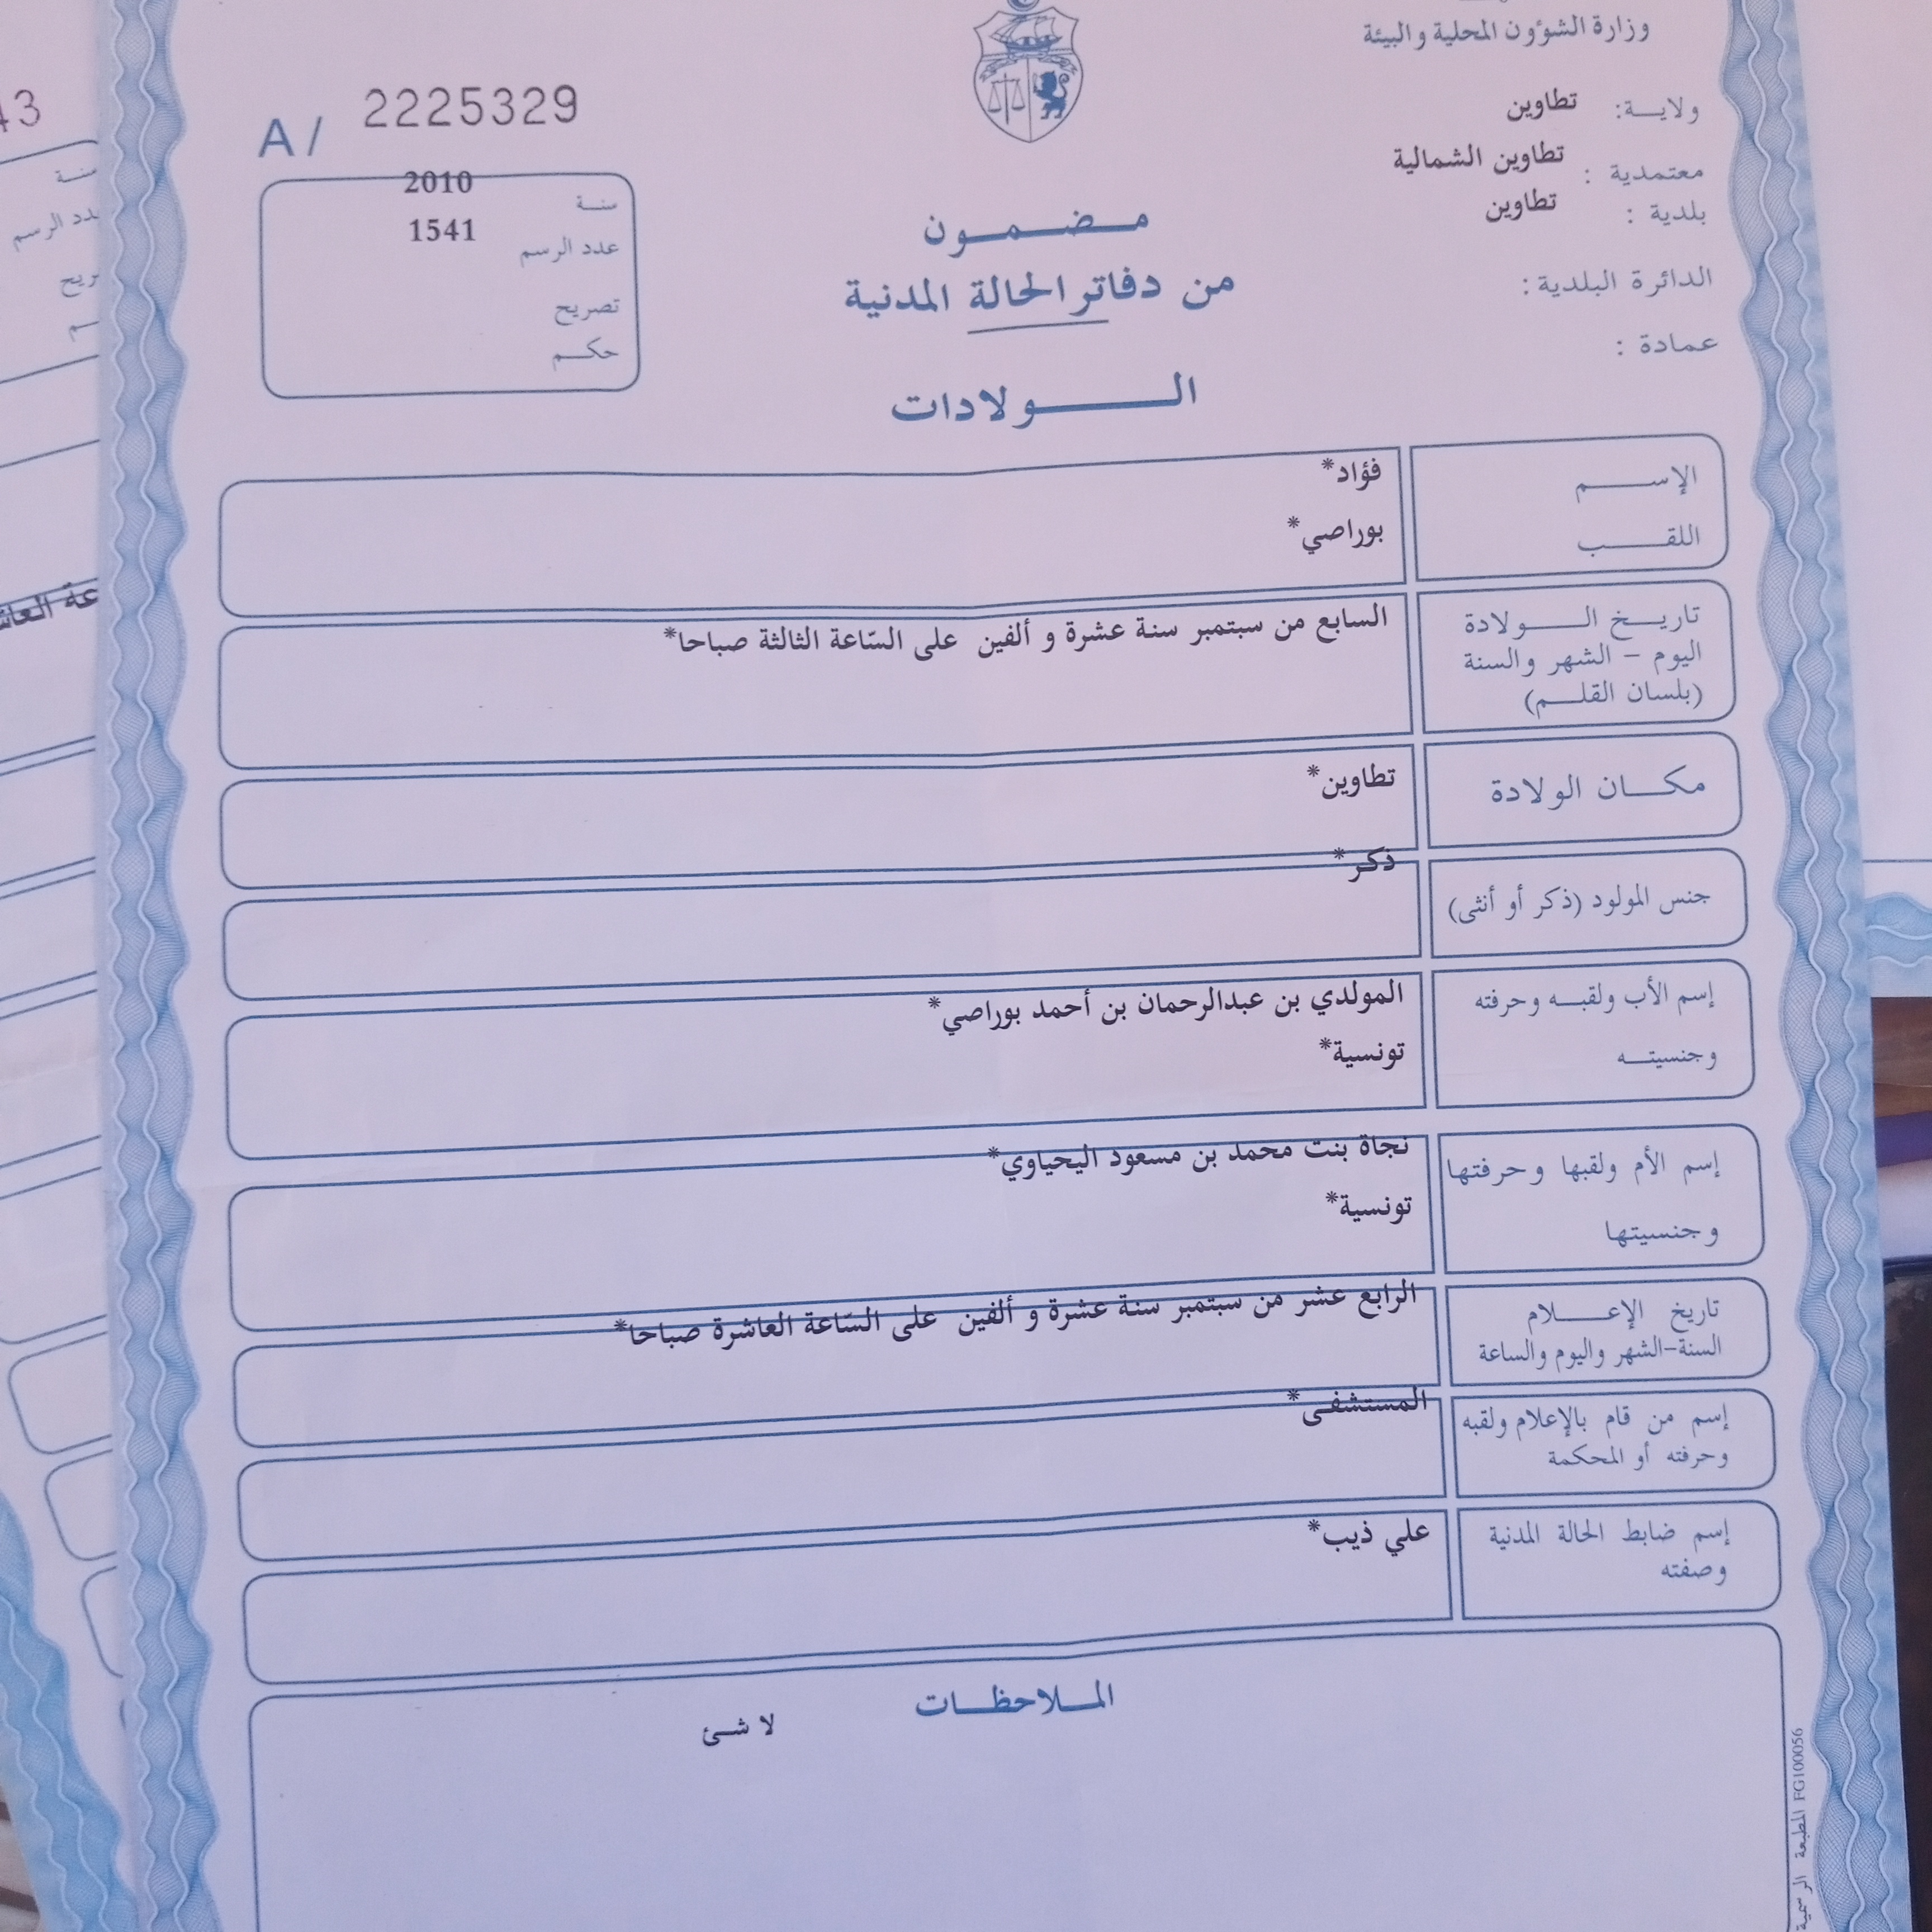 وزارة الشؤون المحلية والبيئة
ولايـــة: تطاوين
معتمدية : تطاوين الشمالية
بلدية : تطاوين
الدائرة البلدية :
عمادة :
A/ 2225329
سنــة 2010
عدد الرسم 1541
تصريح
حكــم
مـضـمـون
من دفاتر الحالة المدنية
الـــولادات
الإســـم فؤاد*
اللقـــب بوراصي*
تاريــخ الـــولادة
اليوم - الشهر والسنة
(بلسان القلــم)
السابع من سبتمبر سنة عشرة و ألفين على السّاعة الثالثة صباحا*
مكـــان الولادة تطاوين*
جنس المولود (ذكر أو أنثى) ذكر*
إسم الأب ولقبــه وحرفته المولدي بن عبدالرحمان بن أحمد بوراصي*
وجنسيتــه تونسية*
إسم الأم ولقبها وحرفتها نجاة بنت محمد بن مسعود اليحياوي*
وجنسيتها تونسية*
تاريخ الإعـــلام
السنة-الشهر واليوم والساعة
الرابع عشر من سبتمبر سنة عشرة و ألفين على السّاعة العاشرة صباحا*
إسم من قام بالإعلام ولقبه
وحرفته أو المحكمة
المستشفى*
إسم ضابط الحالة المدنية
وصفته
علي ذيب*
المــلاحظــات
لا شئ
المطبعة الرسمية FG100056
43
سنــة
عدد الرسم